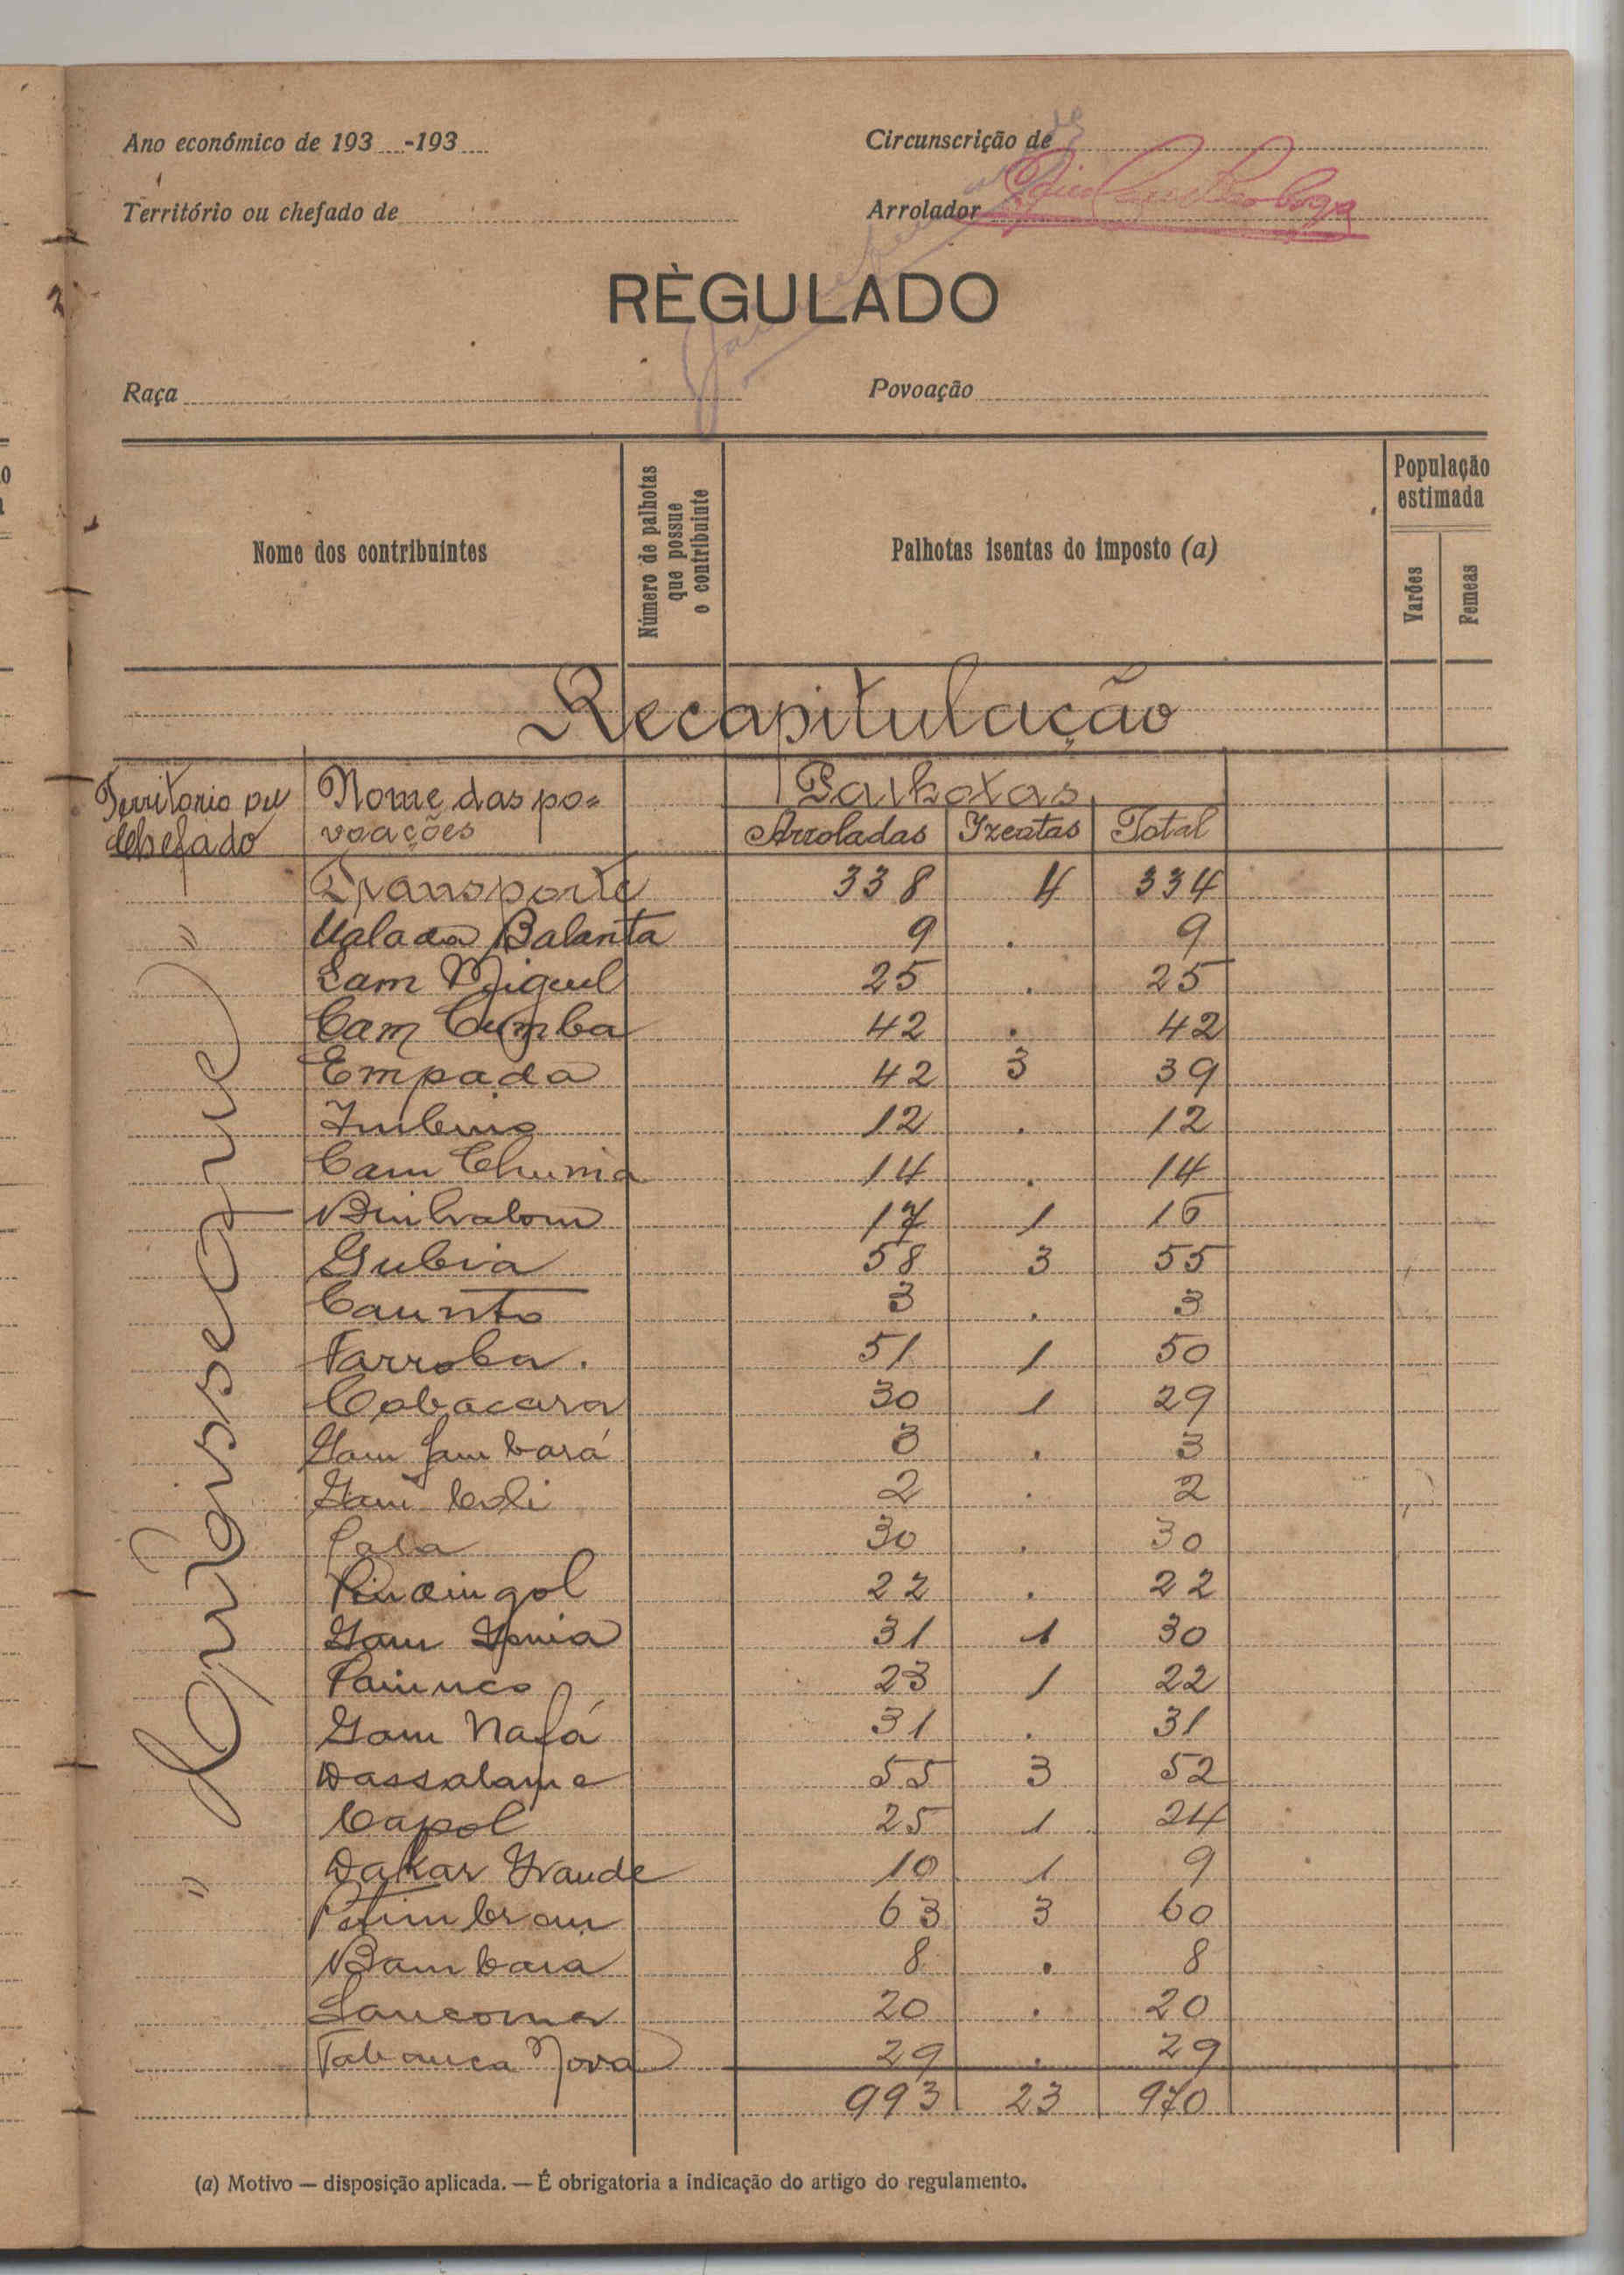 Ano económico de 193 -193
Circunscrição de
Território ou chefado de
Arrolador
RÈGULADO
Raça
Povoação
Nome dos contribuintes
Número de palhotas que possue o contribuinte
Palhotas isentas do imposto (a)
População estimada
Varões
Femeas
Recapitulação
Territorio ou chefado
Nome das po=
voações
Palhotas
Arroladas Izentas Total
Transporte 338 4 334
" Ualada Balanta 9 . 9
Sam Miguel 25 . 25
Cam Cumba 42 . 42
Empada 42 3 39
12 . 12
Cam Chuma 14 . 14
17 1 16
Gubia 58 3 55
Caunto 3 . 3
Farroba . 51 1 50
Cobacara 30 1 29
Gam Jambará 3 . 3
Gam Coli 2 . 2
30 . 30
22 . 22
Gam 31 1 30
23 1 22
Gam Nafá 31 . 31
Dassalame 55 3 52
Capol 25 1 24
" Dakar Grande 10 1 9
63 3 60
Bambaia 8 . 8
20 . 20
Tabanca Nova 29 . 29
993 23 970
(a) Motivo — disposição aplicada. — É obrigatoria a indicação do artigo do regulamento.